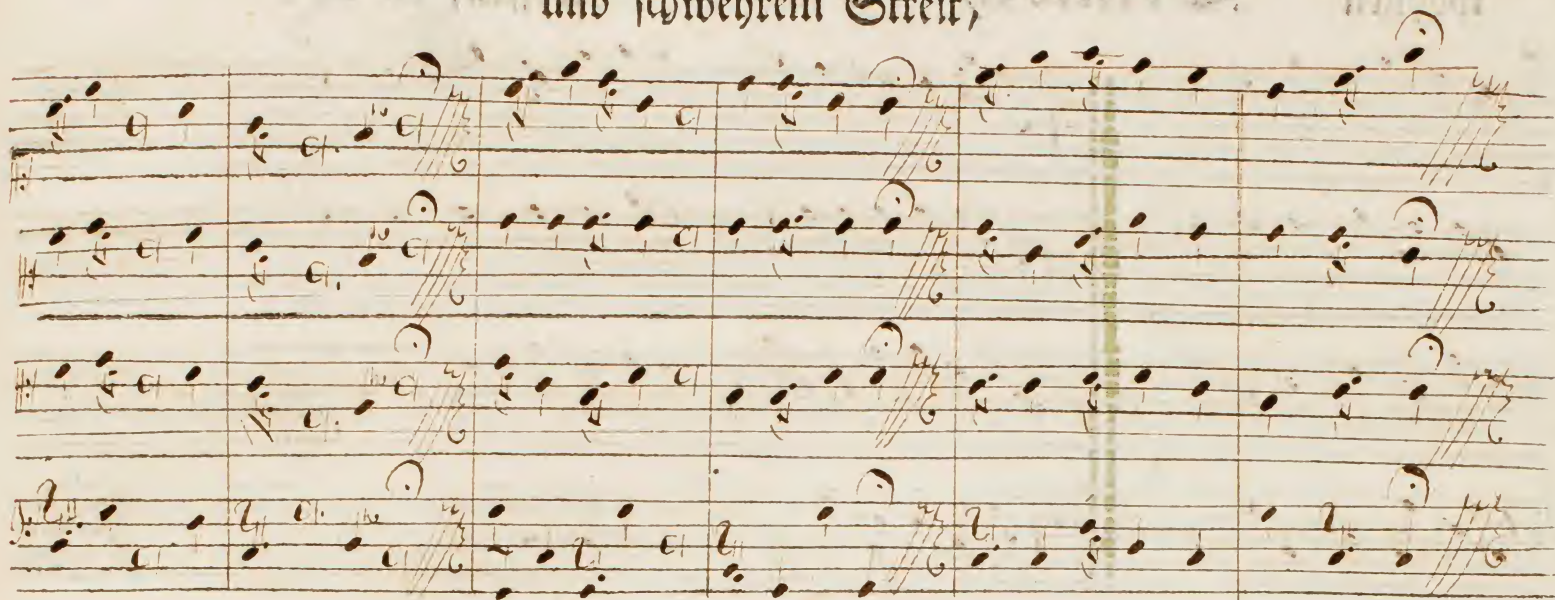 und schwehrem Streit,